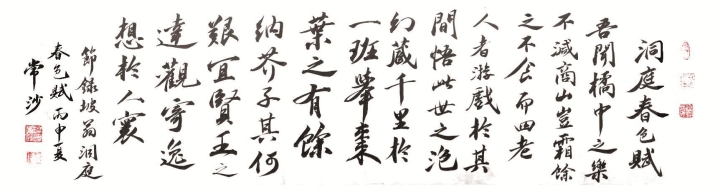 洞庭春色賦
吾聞橘中之樂
不減商山豈霜餘
之不食而四老
人者游戲於其
間悟此世之泡
幻藏千里於
一班舉棗
葉之有餘
納芥子其何
艱宜賢王之
達觀寄逸
想於人寰
節錄坡翁洞庭
春色賦丙申夏
常沙